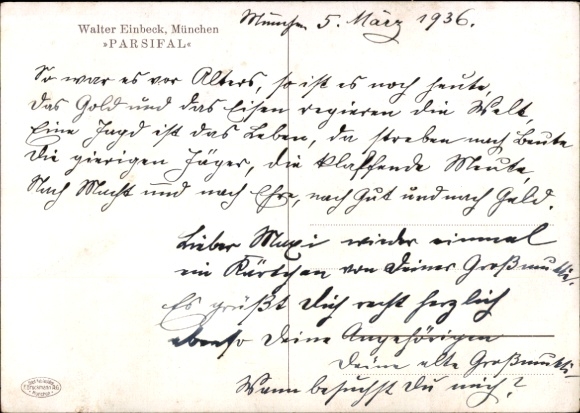 Walter Einbeck, München
»PARSIFAL«
München 5. März 1936.
So war es vor Alters, so ist es noch heute,
Das Gold und das Eisen regieren die Welt,
Eine Jagd ist das Leben, da streben nach Beute
Die gierigen Jäger, die klaffende Meute,
Nach Macht und nach Ehre, nach Gut und nach Geld.
Lieber Maxi wieder einmal
ein Kärtchen von Deiner Großmutti.
Es grüßt Dich recht herzlich
ebenso Deine Angehörigen
Deine alte Großmutti.
Wann besuchst Du mich?